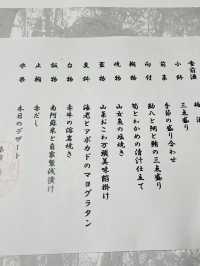 食前酒　梅酒
小鉢　三点盛り
前菜　季節の盛り合わせ
向付　助八と鯛と鮪の三点盛り
椀物　筍とわかめの清汁仕立て
焼物　山女魚の塩焼き
蓋物　山菜おこわ万願美味餡掛け
海老とアボカドのマヨグラタン
台物　赤牛の溶岩焼き
飯物　南阿蘇米と自家製浅漬け
止椀　赤だし
本日のデザート